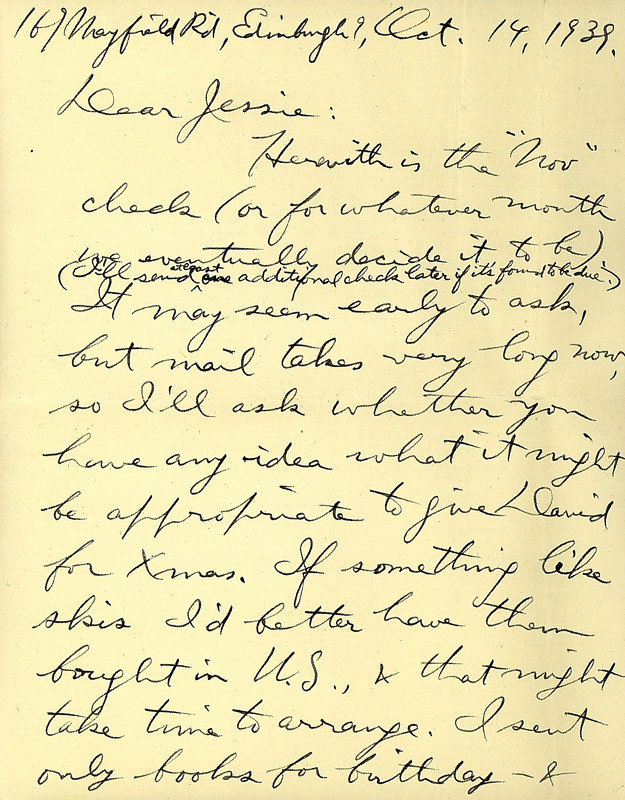 169 Mayfield Rd, Edinburgh 9, Oct. 14, 1939.
Dear Jessie:
Herewith is the "Nov"
check (or for whatever month
we eventually decide it to be)
(I'll send at least one additional check later if it's found to be due.)
It may seem early to ask,
but mail takes very long now,
so I'll ask whether you
have any idea what it might
be appropriate to give David
for Xmas. If something like
skis I'd better have them
bought in U.S., & that might
take time to arrange. I sent
only books for birthday – &